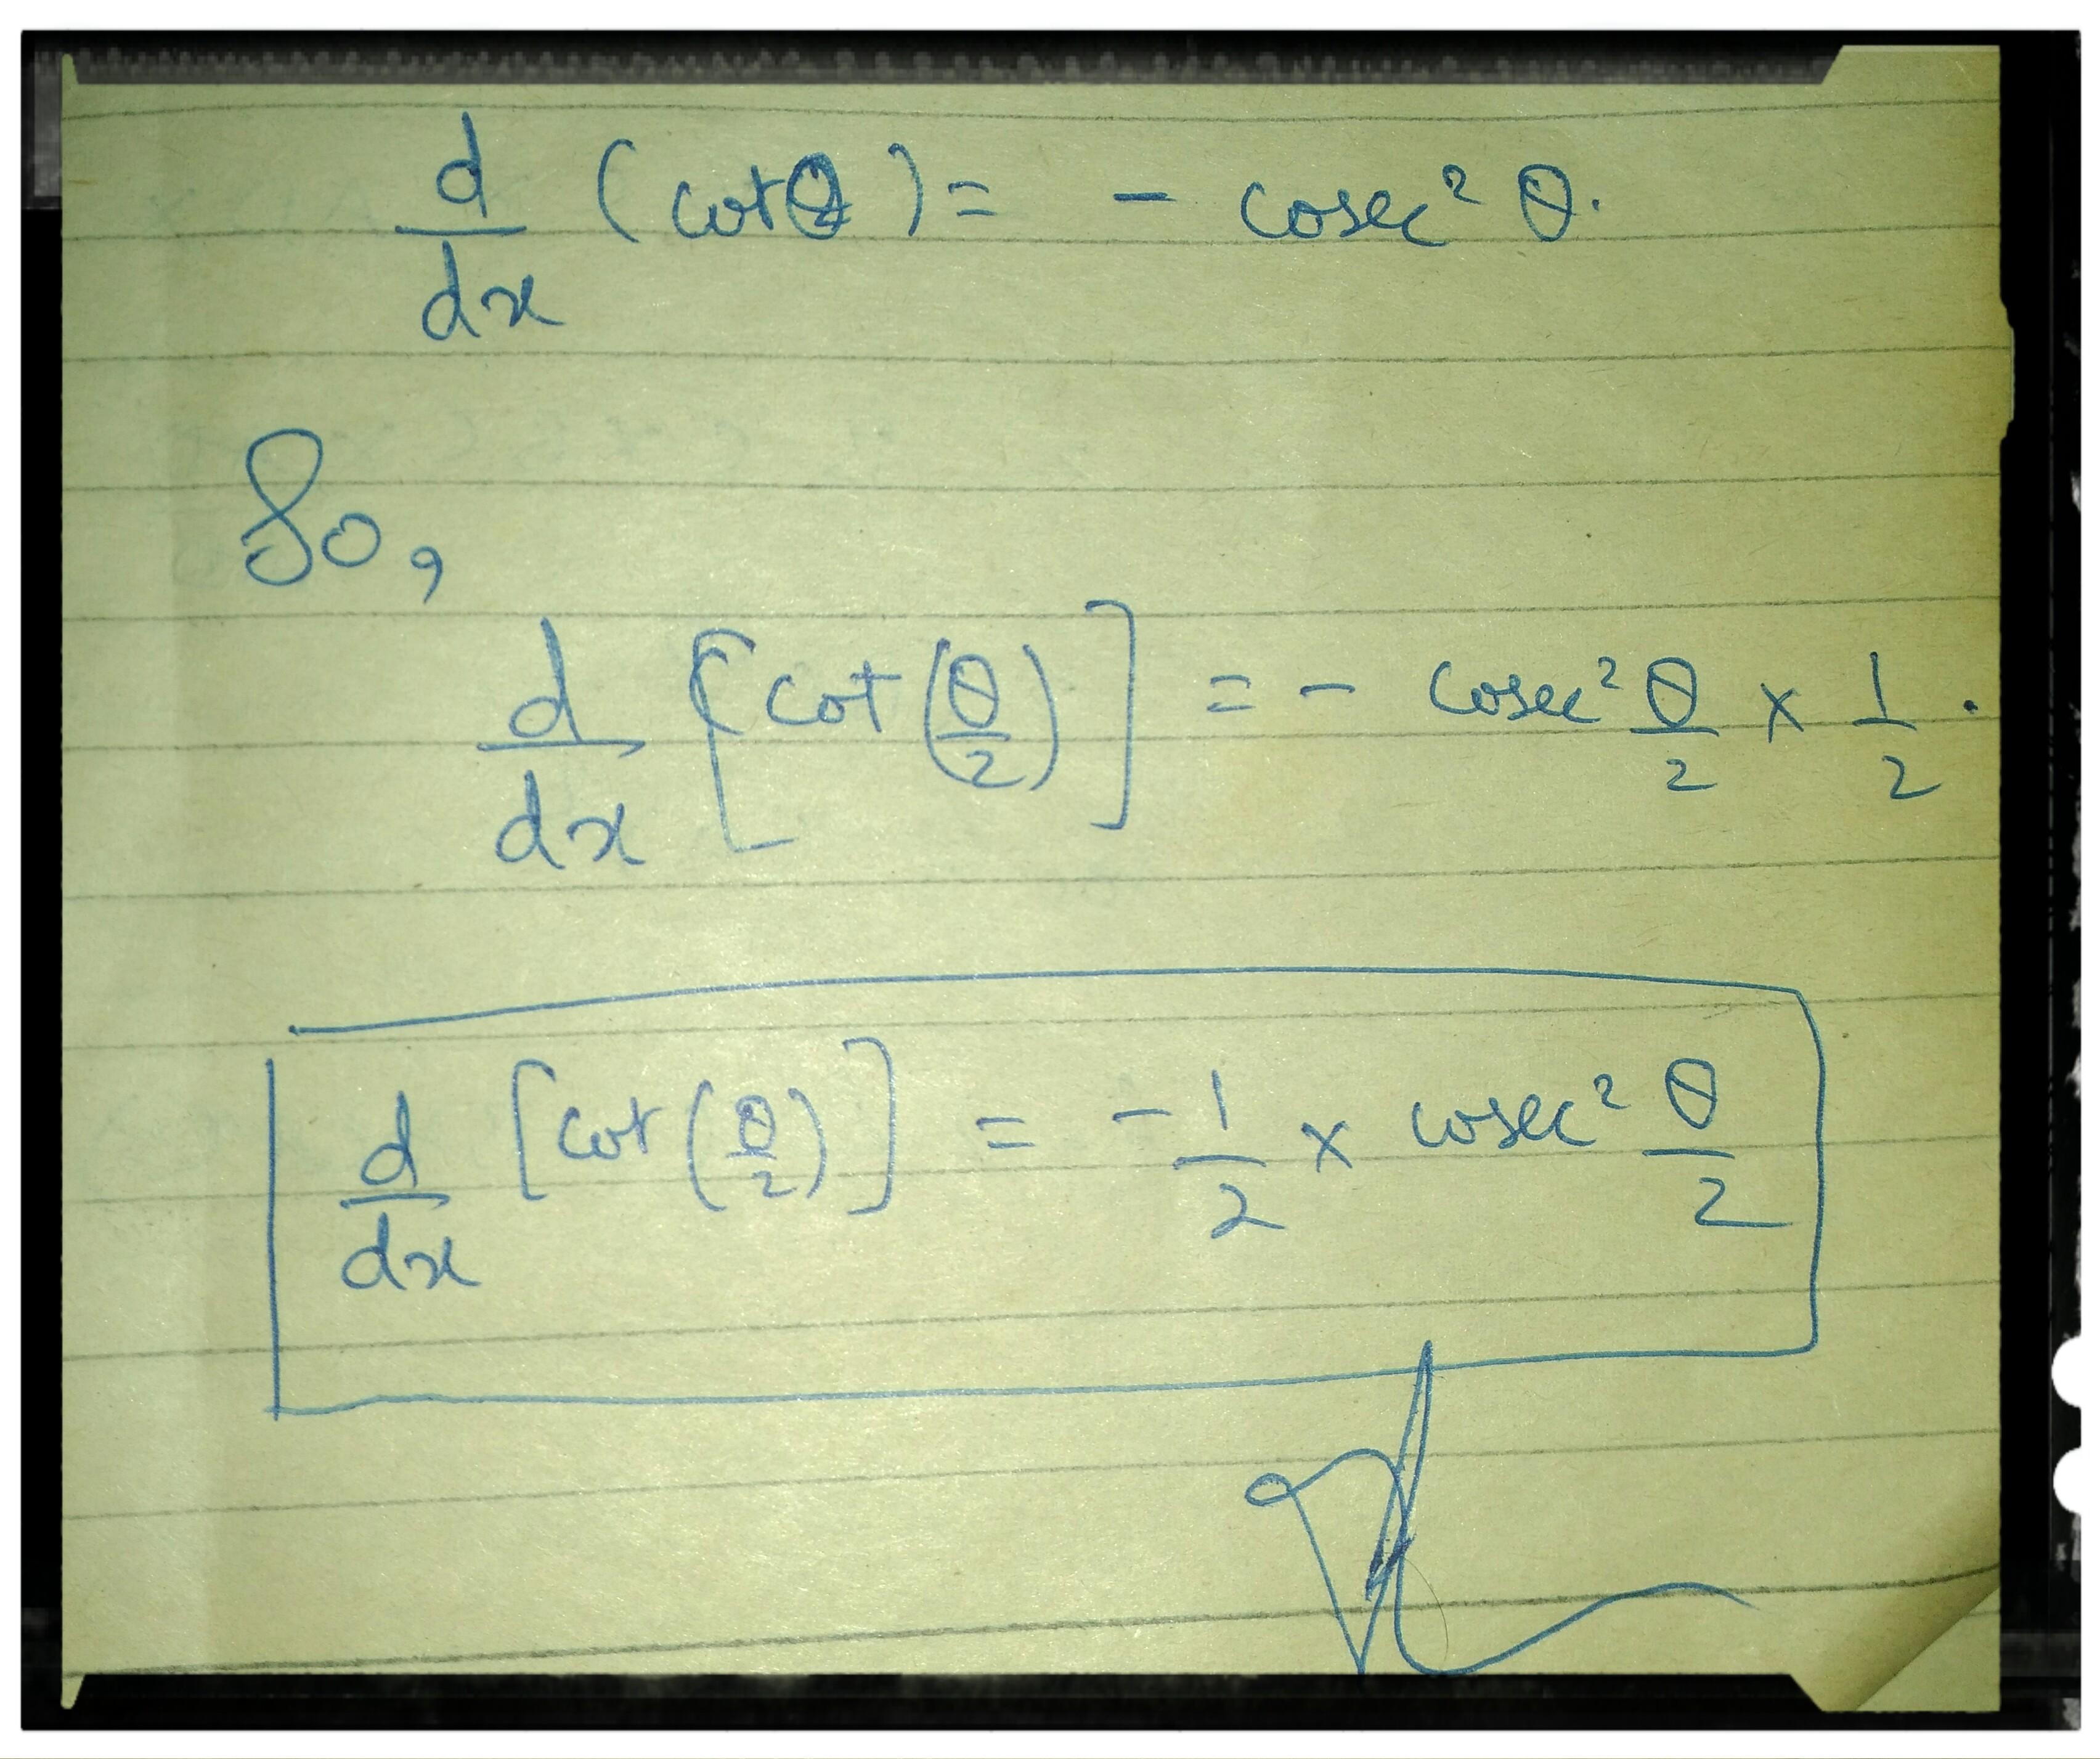 d/dx (cotθ) = - cosec² θ.
So,
d/dx [cot(θ/2)] = - cosec² θ/2 × 1/2.
d/dx [cot(θ/2)] = -1/2 × cosec² θ/2